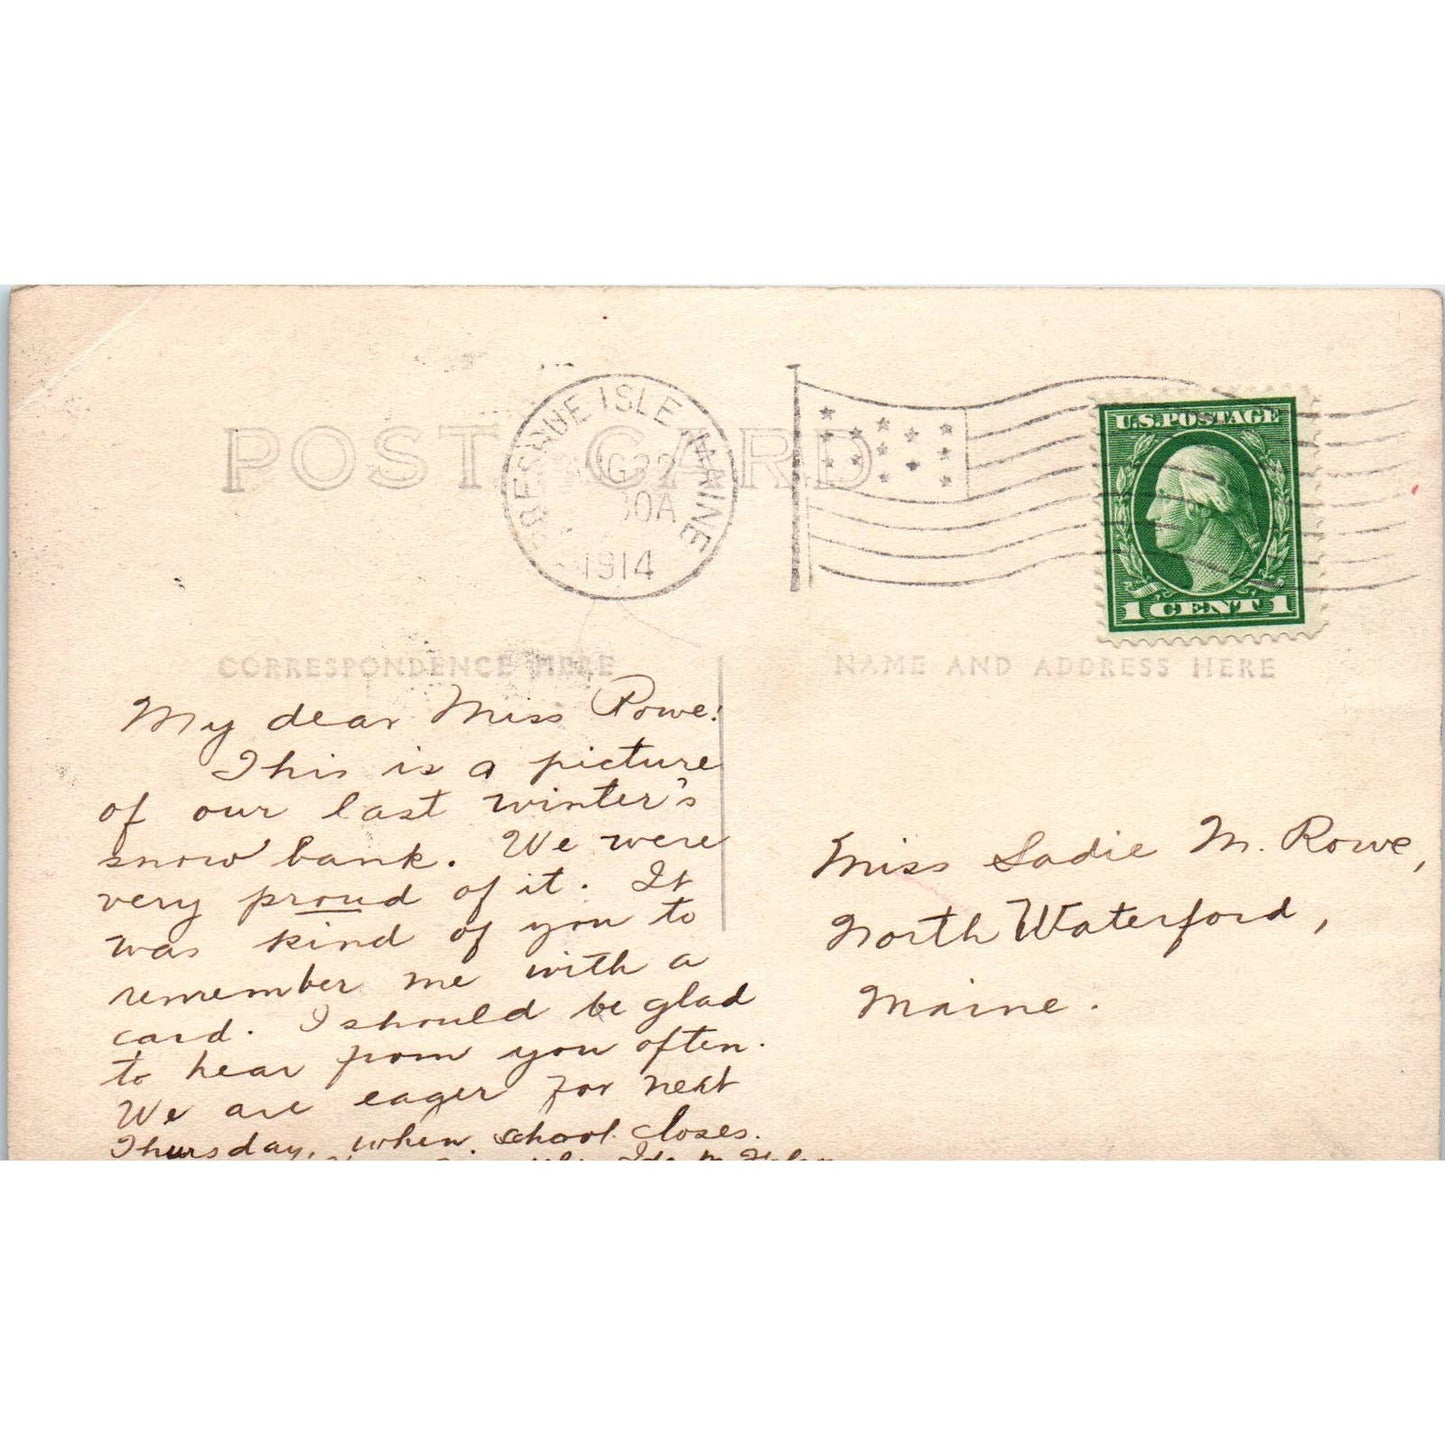 POST CARD
PRESQUE ISLE MAINE
AUG 22
30A
1914
U.S. POSTAGE
1 CENT 1
CORRESPONDENCE HERE
NAME AND ADDRESS HERE
My dear Miss Rowe:
This is a picture
of our last winter's
snow bank. We were
very proud of it. It
was kind of you to
remember me with a
card. I should be glad
to hear from you often.
We are eager for next
Thursday, when school closes.
Ida M.
Miss Sadie M. Rowe,
North Waterford,
Maine.